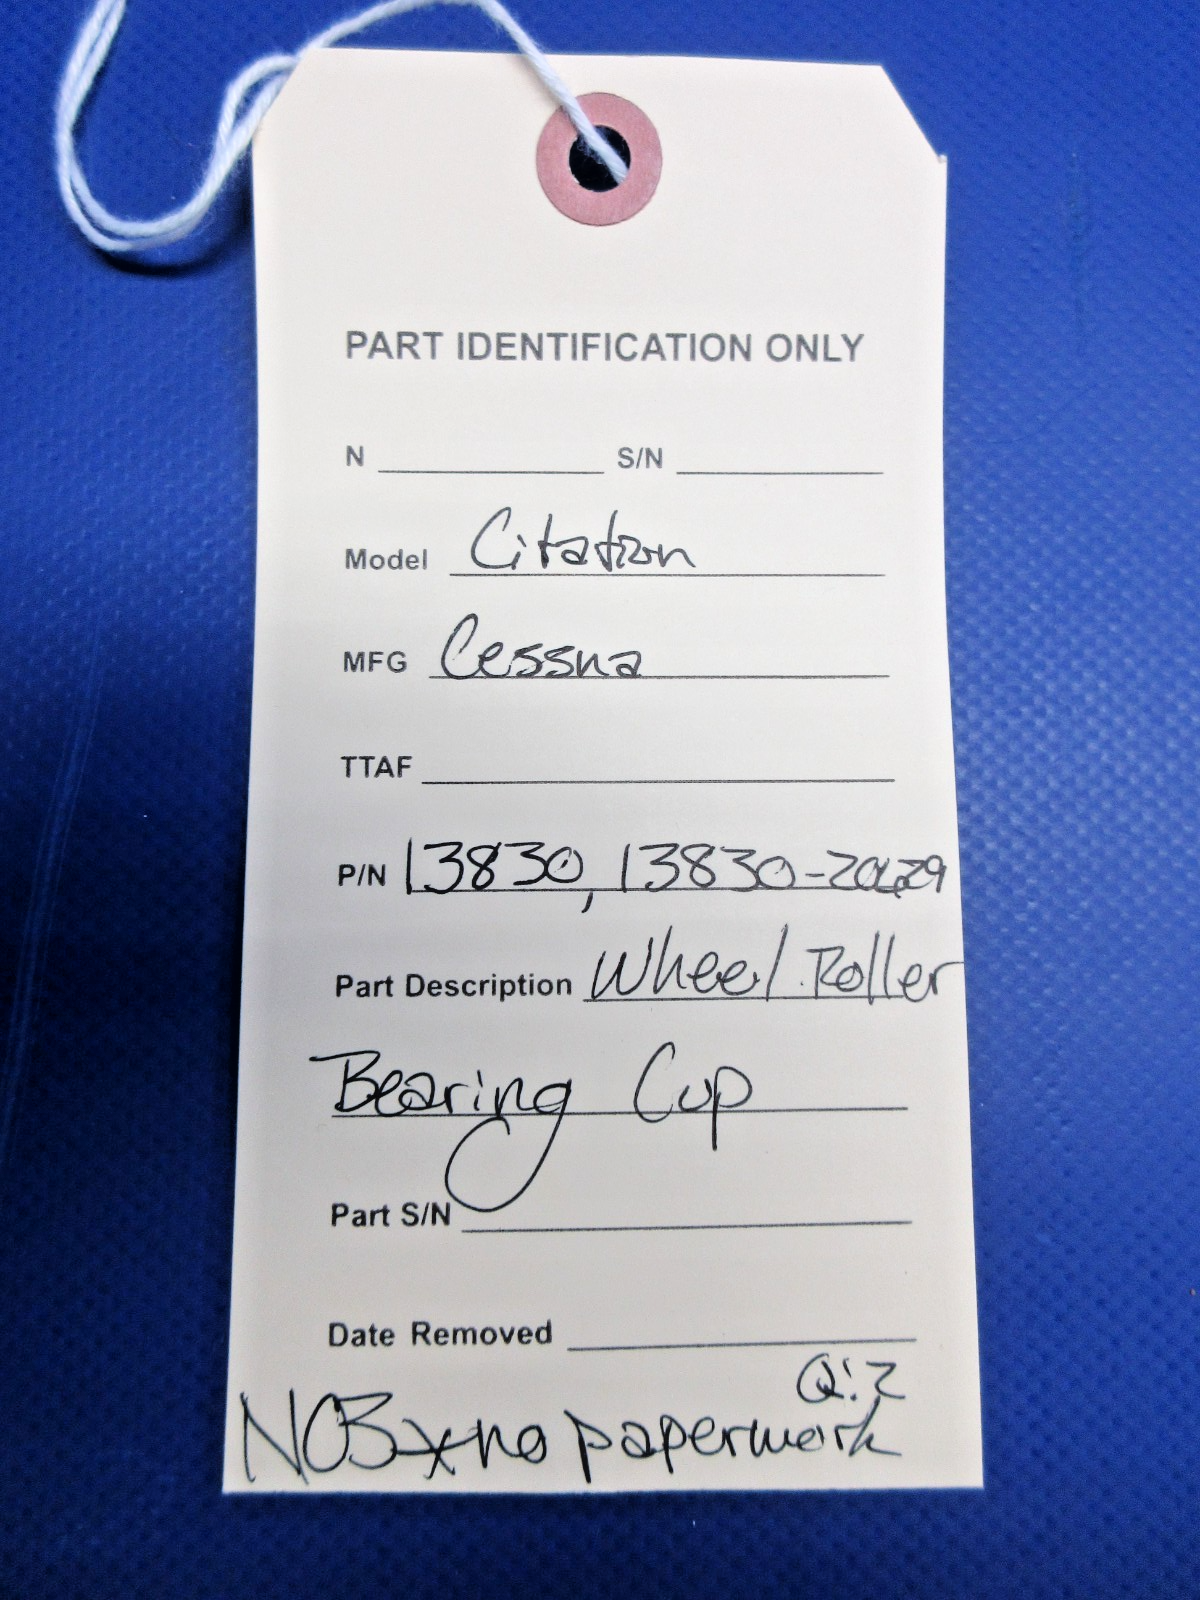 PART IDENTIFICATION ONLY
N S/N
Model Citation
MFG Cessna
TTAF
P/N 13830, 13830-20629
Part Description Wheel Roller
Bearing Cup
Part S/N
Date Removed
Q:2
NOS no paperwork